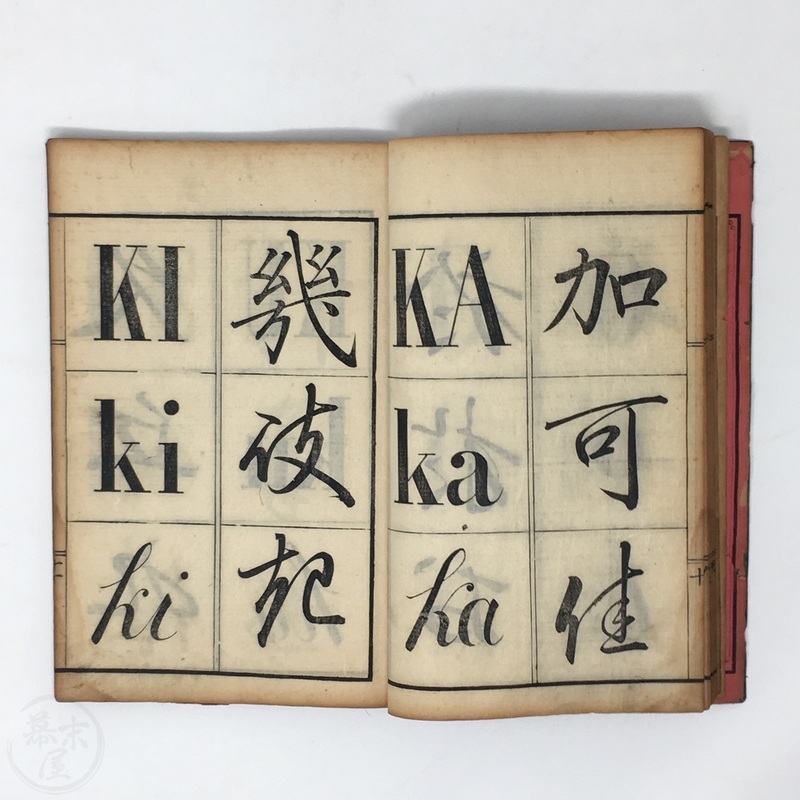 加
可
佳
KA
ka
ka
幾
伎
起
KI
ki
ki
幕末屋